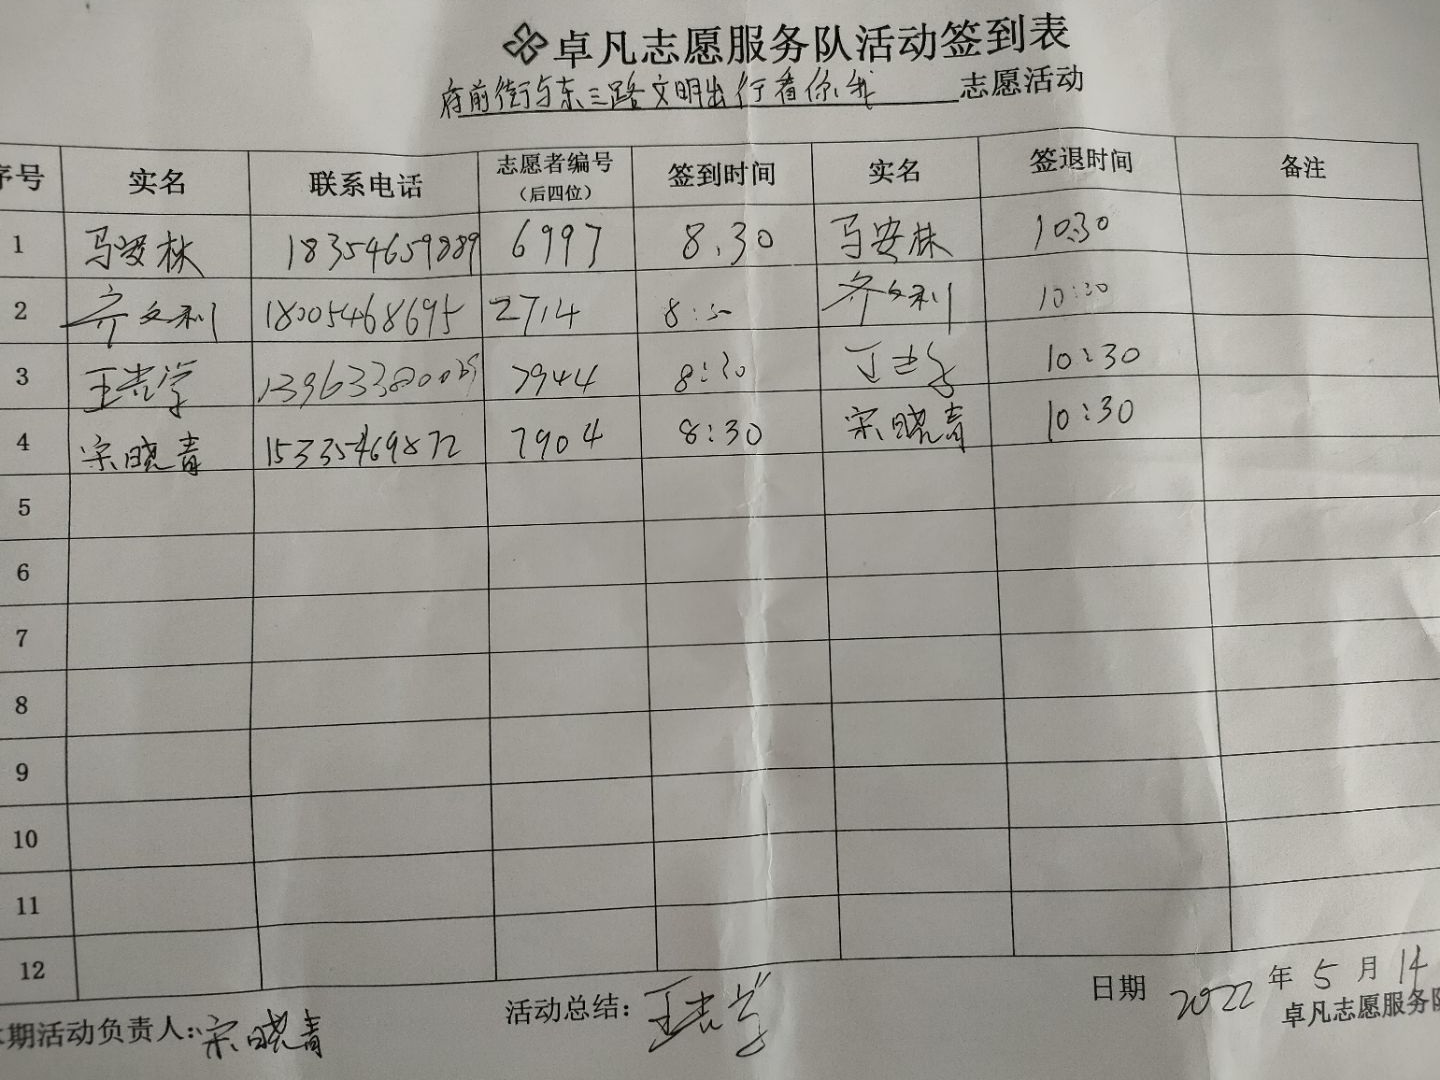 卓凡志愿服务队活动签到表
府前街与东三路文明出行看你我 志愿活动
序号 实名 联系电话 志愿者编号（后四位） 签到时间 实名 签退时间 备注
1 马安林 18354659889 6997 8.30 马安林 10:30
2 齐文利 18005468695 2714 8:30 齐文利 10:30
3 7944 8:30 10:30
4 宋晓青 15335469872 7904 8:30 宋晓青 10:30
5
6
7
8
9
10
11
12
本期活动负责人: 宋晓青 活动总结: 日期 2022年5月14
卓凡志愿服务队